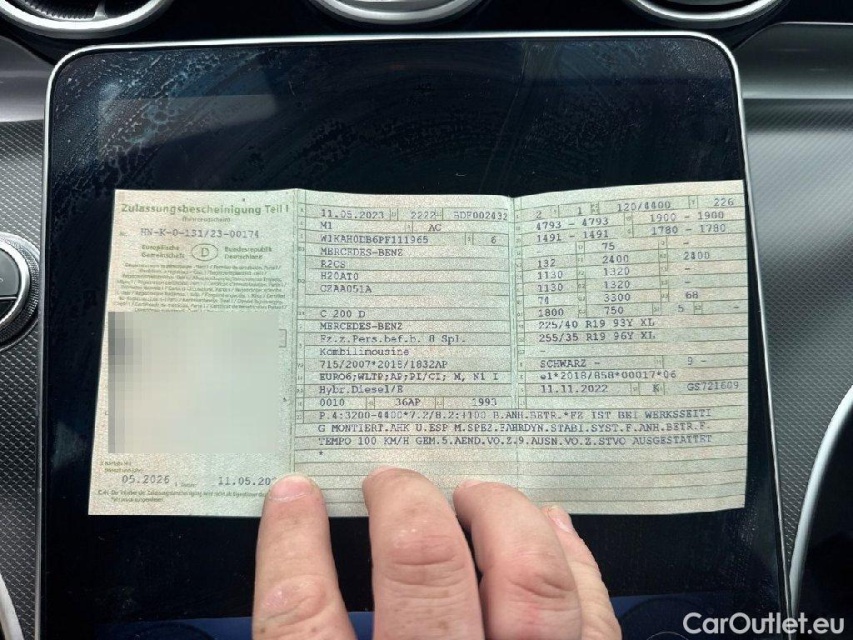 Zulassungsbescheinigung Teil I
(Fahrzeugschein)
HN-K-0-131/23-00174
Europäische Gemeinschaft
D
Bundesrepublik Deutschland
05.2026
11.05.20
11.05.2023 2222
M1 AC
W1KAH0DB6PF111965 6
MERCEDES-BENZ
R2CS
H20AT0
CZAA051A
C 200 D
MERCEDES-BENZ
Fz.z.Pers.bef.b. 8 Spl.
Kombilimousine
715/2007*2018/1832AP
EURO6;WLTP;AP;PI/CI; M, N1 I
Hybr.Diesel/E
0010 36AP 1993
2 1 120/4400 226
4793 - 4793 1900 - 1900
1491 - 1491 1780 - 1780
75 -
132 2400 2400
1130 1320 -
1130 1320 -
74 3300 68
1800 750 5 -
225/40 R19 93Y XL
255/35 R19 96Y XL
SCHWARZ - 9 -
e1*2018/858*00017*06
11.11.2022 K GS721609
P.4:3200-4400*7.2/8.2:+100 B.ANH.BETR.*FZ IST BEI WERKSSEITI
G MONTIERT.AHK U.ESP M.SPEZ.FAHRDYN.STABI.SYST.F.ANH.BETR.F.
TEMPO 100 KM/H GEM.5.AEND.VO.Z.9.AUSN.VO.Z.STVO AUSGESTATTET
*
CarOutlet.eu